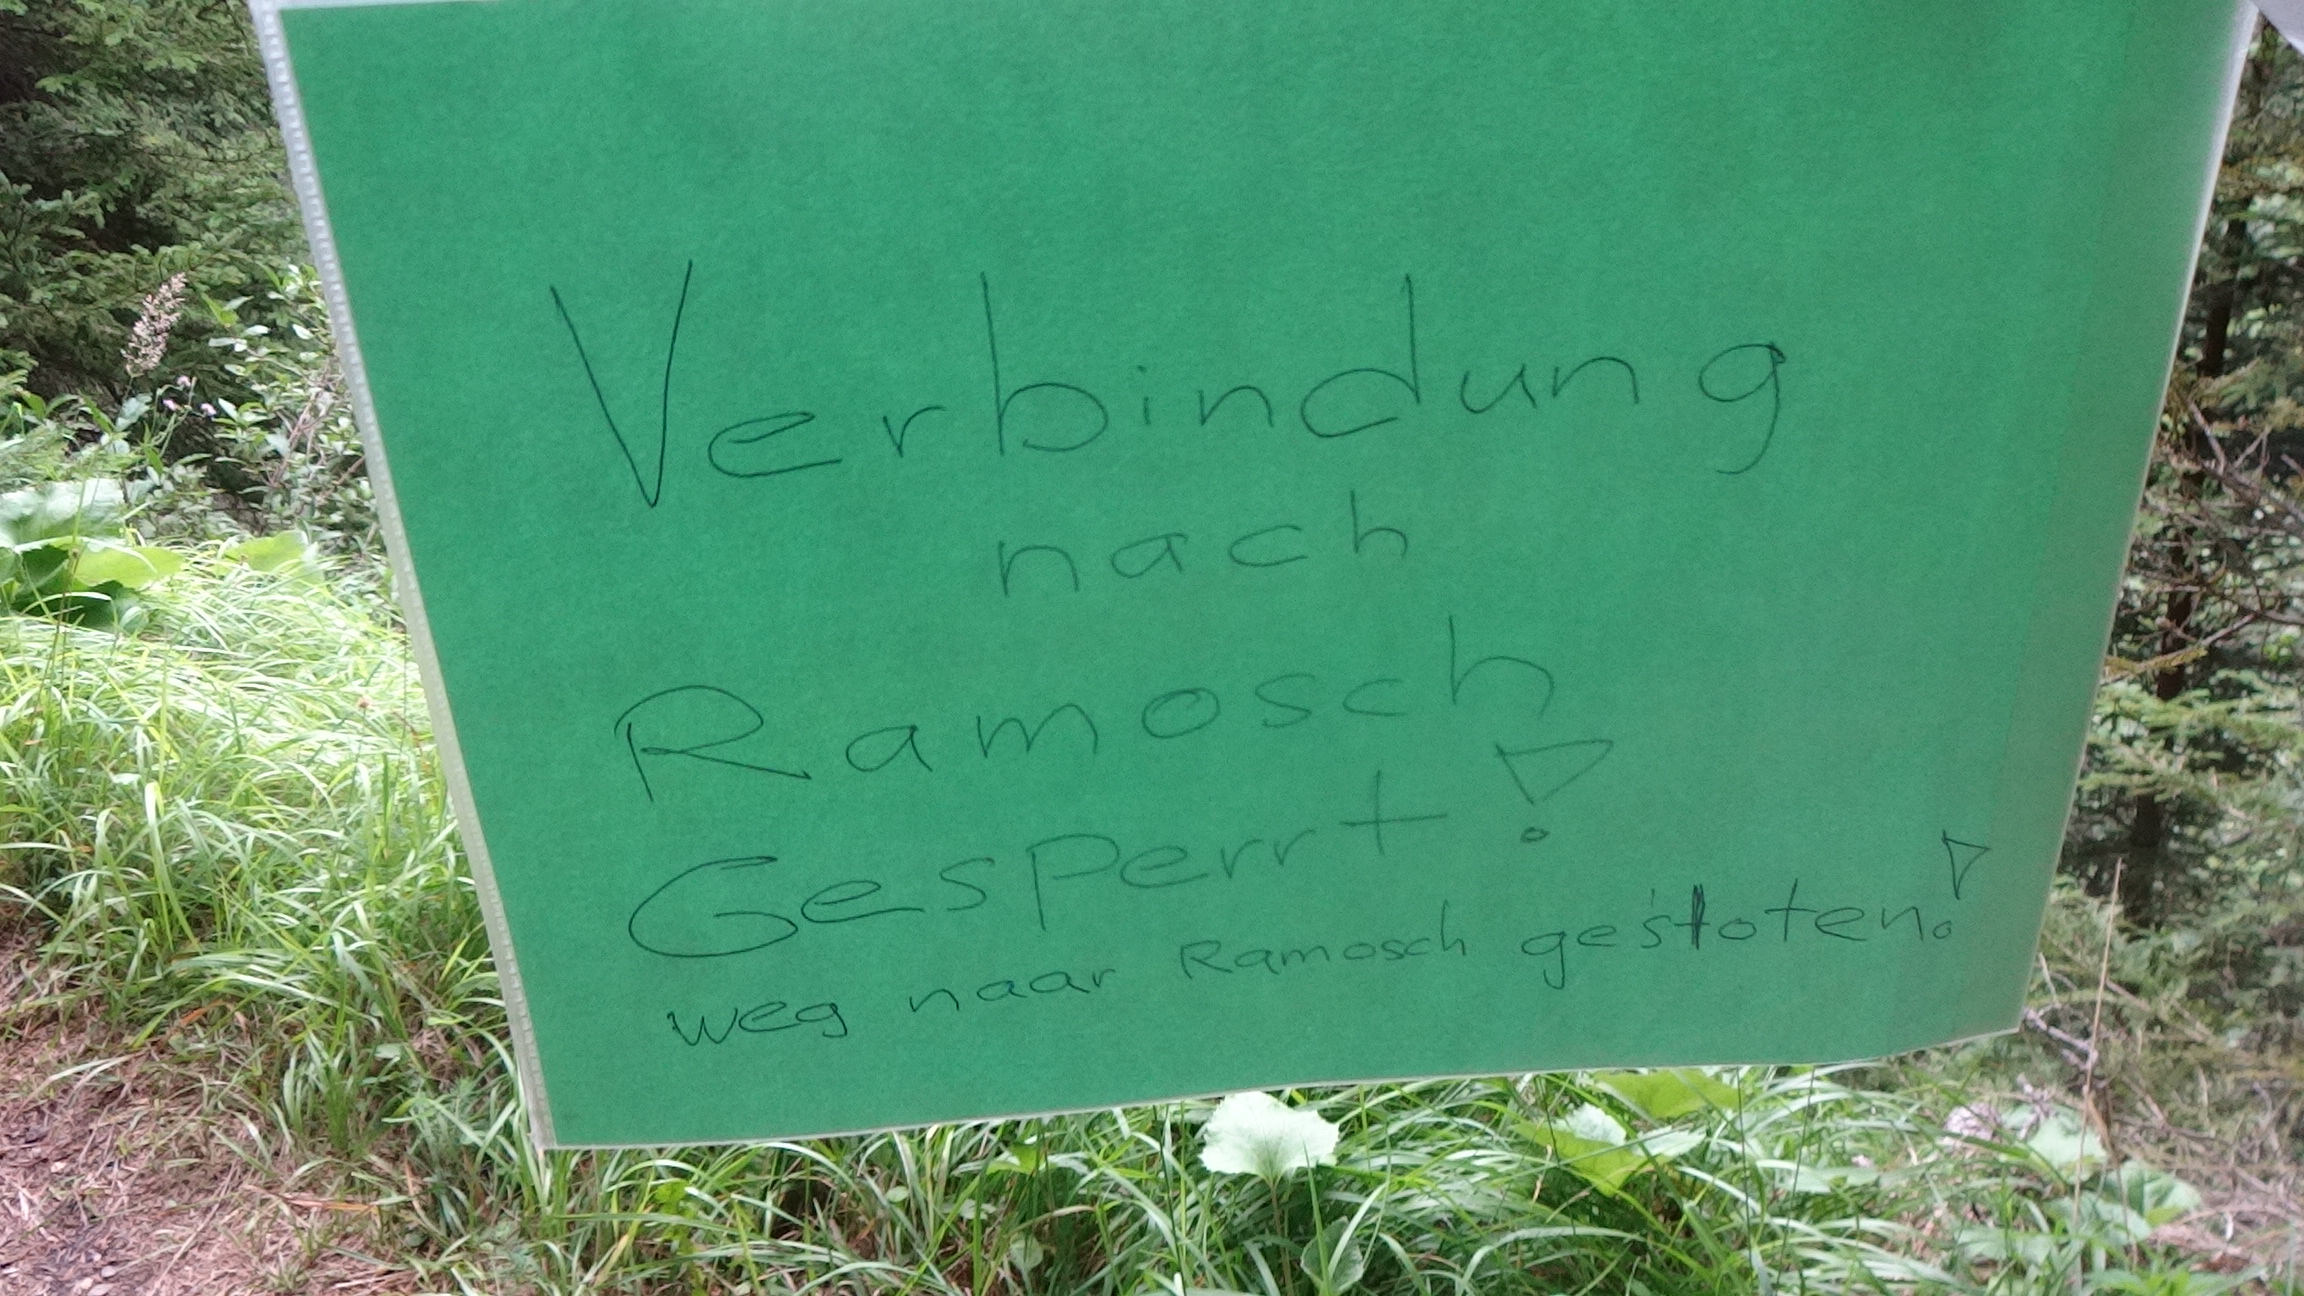 Verbindung
nach
Ramosch
Gesperrt!
weg naar Ramosch gestoten!